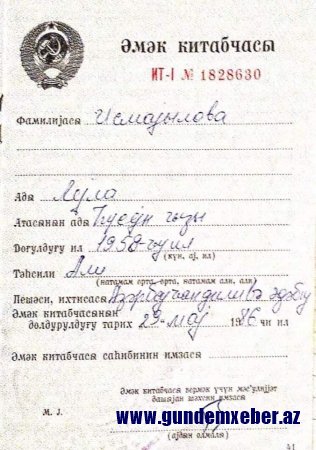 Әмәк китабчасы
ИТ-I № 1828630
Фамилијасы Исмајылова
Ады Лејла
Атасынын ады гызы
Доғулдуғу ил 1958-чи ил
(күн, ај, ил)
Тәһсили Али
(натамам орта, орта, натамам али, али)
Пешәси, ихтисасы Азәрбајҹан дили вә әдәбиј
Әмәк китабчасынын
долдурулдуғу тарих 29-мај 1976 чи ил
Әмәк китабчасы саһибинин имзасы
Әмәк китабчасы вермәк үчүн мәс'улијјәт
дашыјан шәхсин имзасы
www.gundemxeber.az
М. Ј.
(ајдын олмалы)